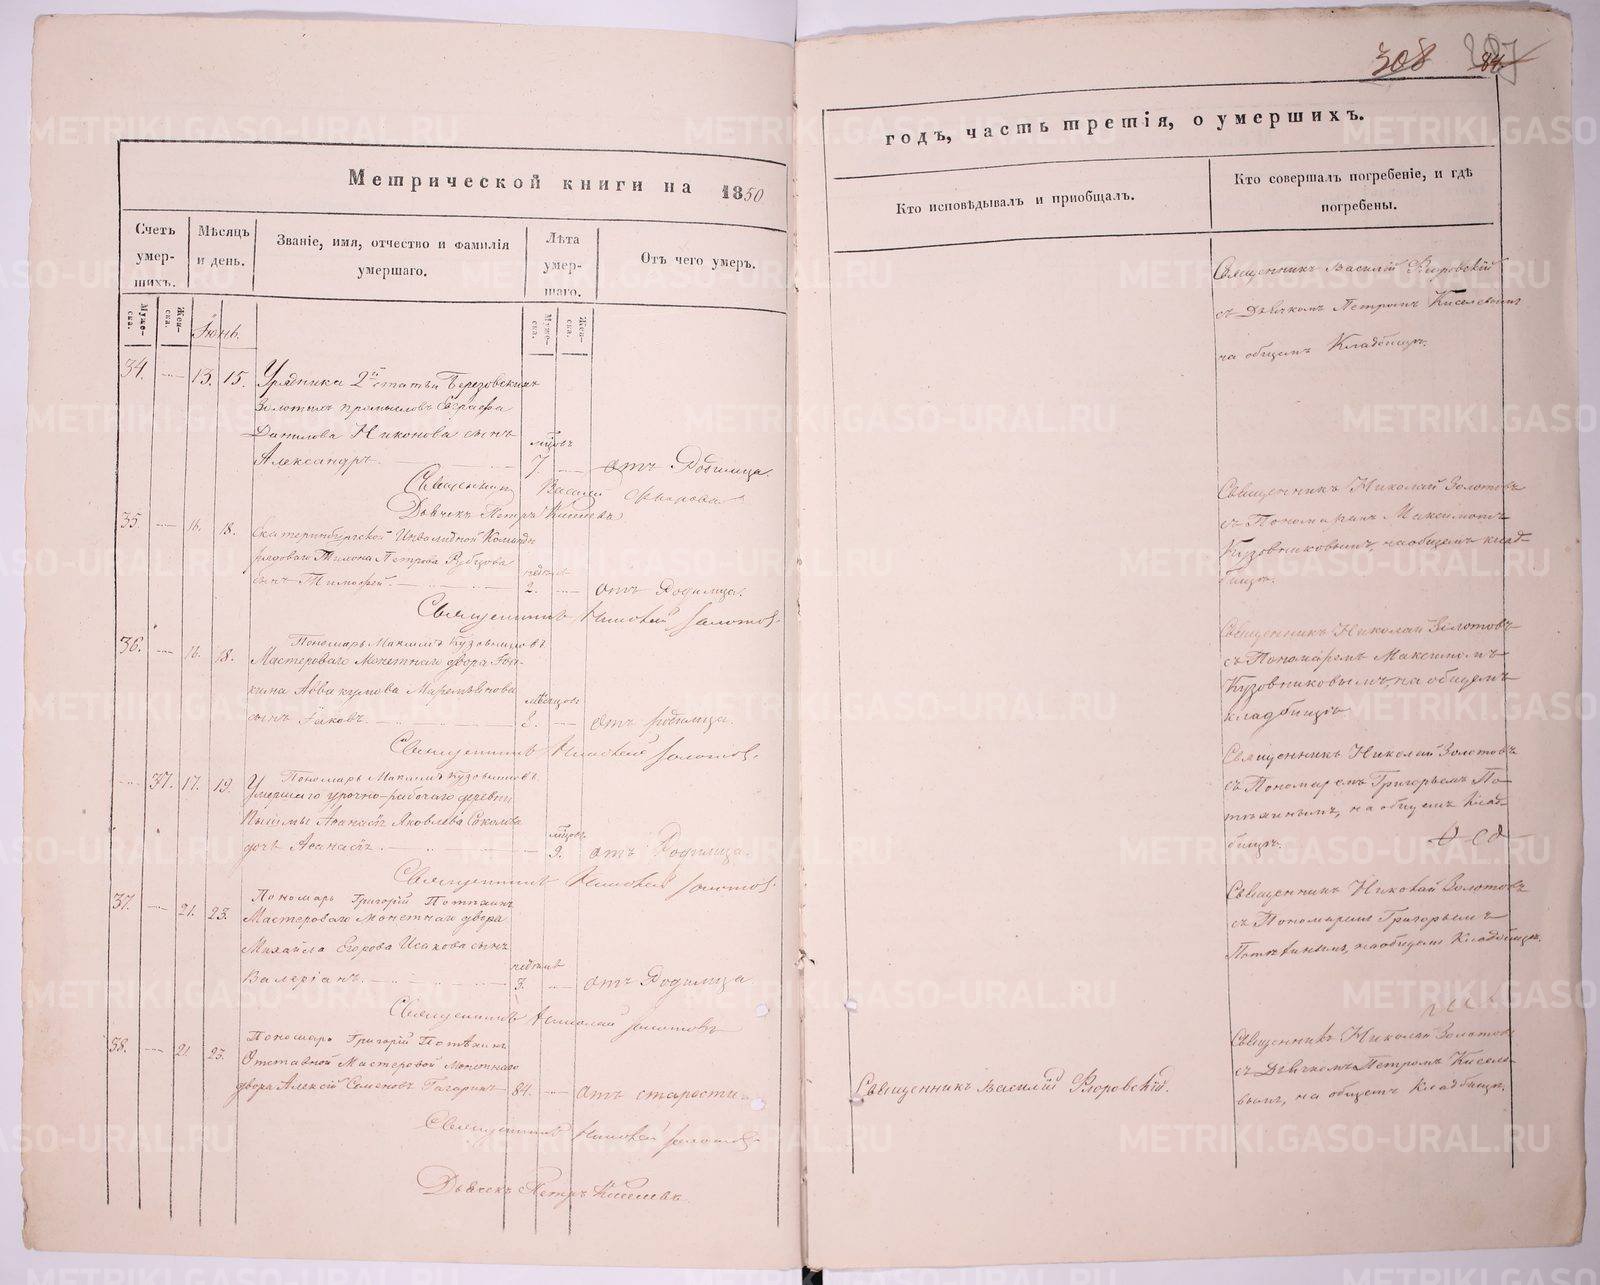 308
Метрической книги на 1850
годъ, часть третія, о умершихъ.
Счетъ умер-шихъ.
Мѣсяцъ и день.
Званіе, имя, отчество и фамилія умершаго.
Лѣта умер-шаго.
Отъ чего умеръ.
Кто исповѣдывалъ и пріобщалъ.
Кто совершалъ погребеніе, и гдѣ погребены.
Муже-ска.
Жен-ска.
Іюнь.
Муже-ска.
Жен-ска.
34. 13. 15. Урядника 2й статьи Березовскихъ
Золотыхъ промысловъ
Данилова Никонова сынъ
Александръ. мѣсцовъ 7. отъ Родимца.
Священникъ Василій
Дьячекъ Петръ Киселевъ
Священникъ Василій Флоровскій
съ Дьячкомъ Петромъ Киселевымъ
на общемъ Кладбищѣ.
35. 16. 18. Екатеринбургской Инвалидной Команды
рядоваго Петрова Рубцова
сынъ Тимофей. недѣль 2. отъ Родимца.
Священникъ Николай Золотовъ.
Пономарь Максимъ Кузовниковъ
Священникъ Николай Золотовъ
съ Пономаремъ Максимомъ
Кузовниковымъ, на общемъ клад-
бищѣ.
36. 16. 18. Мастероваго Монетнаго двора
Аввакумова сынъ Іаковъ. мѣсяцовъ 8. отъ родимца.
Священникъ Николай Золотовъ.
Пономарь Максимъ Кузовниковъ
Священникъ Николай Золотовъ
съ Пономаремъ Максимомъ
Кузовниковымъ, на общемъ
кладбищѣ
37. 17. 19. Умершаго урочно-рабочаго деревни
Пышмы Яковлева Соколова
дочь мѣсцовъ 9. отъ Родимца.
Священникъ Николай Золотовъ.
Пономарь Григорій Потѣхинъ
Священникъ Николай Золотовъ
съ Пономаремъ Григорьемъ По-
тѣхинымъ, на общемъ Клад-
бищѣ.
37. 21. 23. Мастероваго Монетнаго двора
Михайла Егорова Исакова сынъ
Валеріанъ. недѣль 3. отъ Родимца.
Священникъ Николай Золотовъ
Пономарь Григорій Потѣхинъ
Священникъ Николай Золотовъ
съ Пономаремъ Григорьемъ
Потѣхинымъ, на общемъ Кладбищѣ.
38. 21. 23. Отставной Мастеровой Монетнаго
двора Алексѣй Семеновъ Гагаринъ 84. отъ старости.
Священникъ Николай Золотовъ.
Дьячекъ Петръ Киселевъ.
Священникъ Василій Флоровскій.
Священникъ Николай Золотовъ
съ Дьячкомъ Петромъ Киселе-
вымъ, на общемъ Кладбищѣ.
METRIKI.GASO-URAL.RU